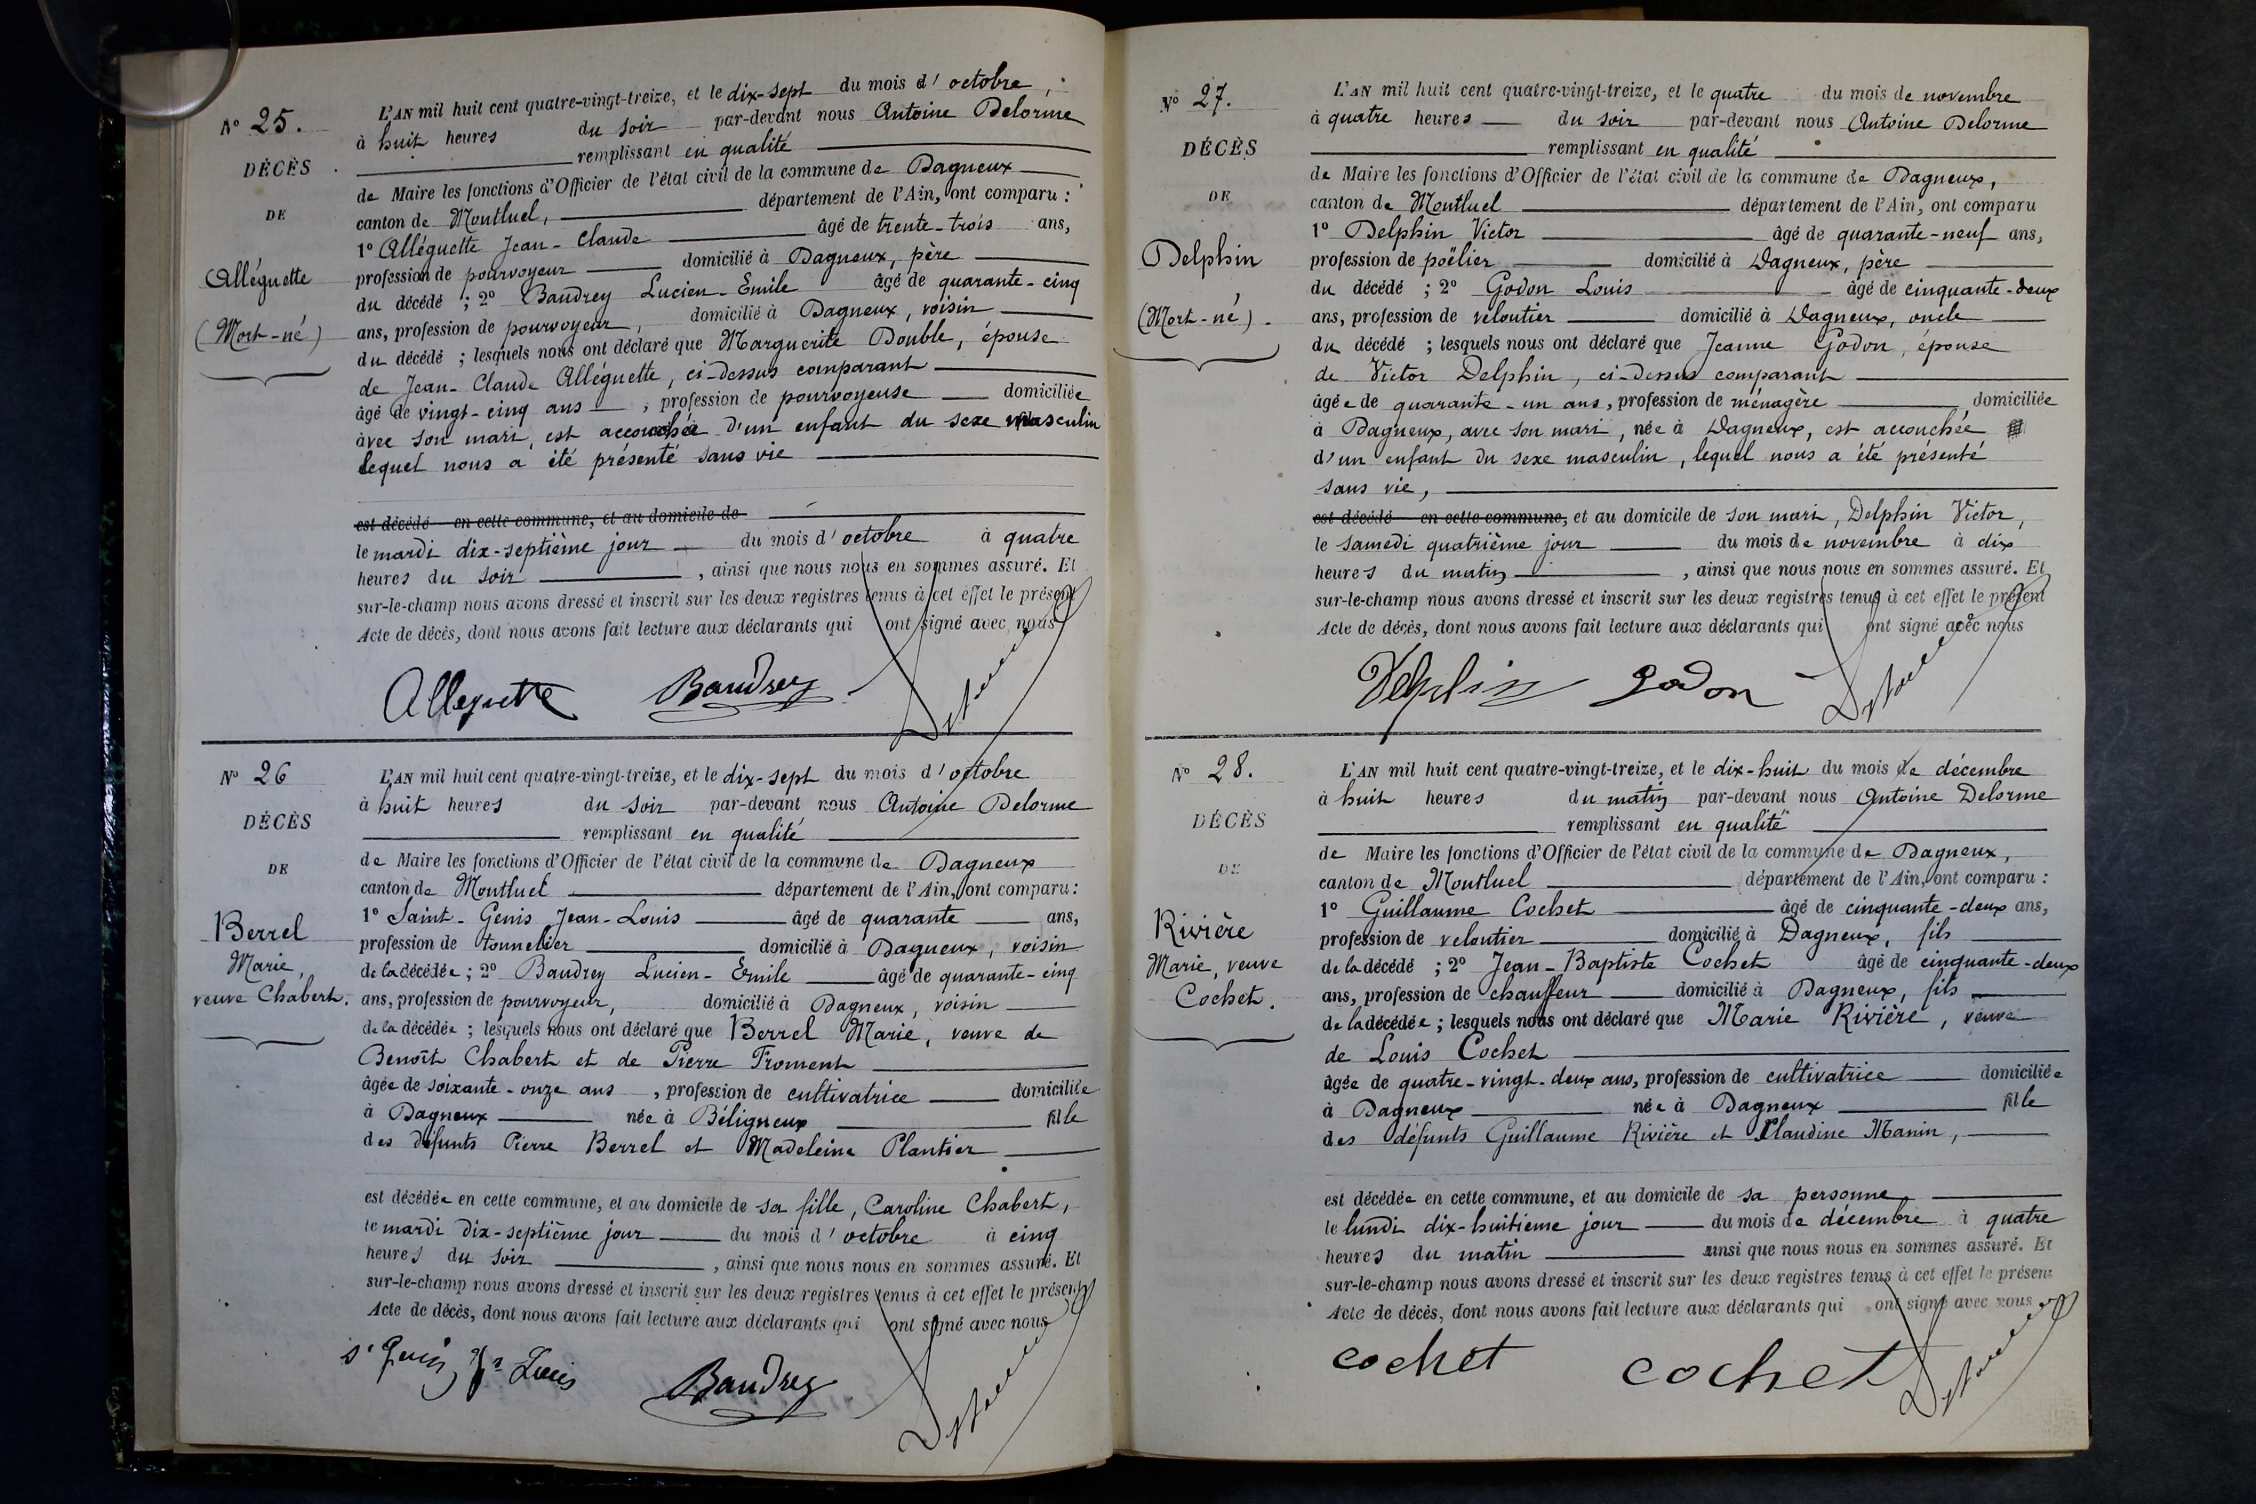 N° 25.
DÉCÈS
DE
Alléguette
(Mort-né)
L'AN mil huit cent quatre-vingt-treize, et le dix-sept du mois d'octobre,
à huit heures du soir par-devant nous Antoine Delorme
remplissant en qualité
de Maire les fonctions d'Officier de l'état civil de la commune de Dagneux
canton de Montluel, département de l'Ain, ont comparu :
1° Alléguette Jean-Claude âgé de trente-trois ans,
profession de pourvoyeur domicilié à Dagneux, père
du décédé ; 2° Baudrey Lucien-Emile âgé de quarante-cinq
ans, profession de pourvoyeur, domicilié à Dagneux, voisin
du décédé ; lesquels nous ont déclaré que Marguerite Double, épouse
de Jean-Claude Alléguette, ci-dessus comparant
âgé de vingt-cinq ans, profession de pourvoyeuse domiciliée
avec son mari, est accouchée d'un enfant du sexe masculin
lequel nous a été présenté sans vie
est décédé en cette commune, et au domicile de
le mardi dix-septième jour du mois d'octobre à quatre
heures du soir, ainsi que nous nous en sommes assuré. Et
sur-le-champ nous avons dressé et inscrit sur les deux registres tenus à cet effet le présent
Acte de décès, dont nous avons fait lecture aux déclarants qui ont signé avec nous
Alleguette Baudrey Delorme
N° 26
DÉCÈS
DE
Berrel
Marie,
veuve Chabert.
L'AN mil huit cent quatre-vingt-treize, et le dix-sept du mois d'octobre
à huit heures du soir par-devant nous Antoine Delorme
remplissant en qualité
de Maire les fonctions d'Officier de l'état civil de la commune de Dagneux
canton de Montluel département de l'Ain, ont comparu :
1° Saint-Genis Jean-Louis âgé de quarante ans,
profession de tonnelier domicilié à Dagneux, voisin
de la décédée ; 2° Baudrey Lucien-Emile âgé de quarante-cinq
ans, profession de pourvoyeur, domicilié à Dagneux, voisin
de la décédée ; lesquels nous ont déclaré que Berrel Marie, veuve de
Benoît Chabert et de Pierre Froment
âgée de soixante-onze ans, profession de cultivatrice domiciliée
à Dagneux née à Béligneux fille
des défunts Pierre Berrel et Madeleine Plantier
est décédée en cette commune, et au domicile de sa fille, Caroline Chabert,
le mardi dix-septième jour du mois d'octobre à cinq
heures du soir, ainsi que nous nous en sommes assuré. Et
sur-le-champ nous avons dressé et inscrit sur les deux registres tenus à cet effet le présent
Acte de décès, dont nous avons fait lecture aux déclarants qui ont signé avec nous
St Genis Jn Louis Baudrey Delorme
N° 27.
DÉCÈS
DE
Delphin
(Mort-né).
L'AN mil huit cent quatre-vingt-treize, et le quatre du mois de novembre
à quatre heures du soir par-devant nous Antoine Delorme
remplissant en qualité
de Maire les fonctions d'Officier de l'état civil de la commune de Dagneux,
canton de Montluel département de l'Ain, ont comparu
1° Delphin Victor âgé de quarante-neuf ans,
profession de poëlier domicilié à Dagneux, père
du décédé ; 2° Godon Louis âgé de cinquante-deux
ans, profession de veloutier domicilié à Dagneux, oncle
du décédé ; lesquels nous ont déclaré que Jeanne Godon, épouse
de Victor Delphin, ci-dessus comparant
âgée de quarante-un ans, profession de ménagère domiciliée
à Dagneux, avec son mari, née à Dagneux, est accouchée
d'un enfant du sexe masculin, lequel nous a été présenté
sans vie,
est décédé en cette commune, et au domicile de son mari, Delphin Victor,
le samedi quatrième jour du mois de novembre à dix
heures du matin, ainsi que nous nous en sommes assuré. Et
sur-le-champ nous avons dressé et inscrit sur les deux registres tenus à cet effet le présent
Acte de décès, dont nous avons fait lecture aux déclarants qui ont signé avec nous
Delphin Godon Delorme
N° 28.
DÉCÈS
DE
Rivière
Marie, veuve
Cochet.
L'AN mil huit cent quatre-vingt-treize, et le dix-huit du mois de décembre
à huit heures du matin par-devant nous Antoine Delorme
remplissant en qualité
de Maire les fonctions d'Officier de l'état civil de la commune de Dagneux,
canton de Montluel département de l'Ain, ont comparu :
1° Guillaume Cochet âgé de cinquante-deux ans,
profession de veloutier domicilié à Dagneux, fils
de la décédé ; 2° Jean-Baptiste Cochet âgé de cinquante-deux
ans, profession de chauffeur domicilié à Dagneux, fils
de la décédée ; lesquels nous ont déclaré que Marie Rivière, veuve
de Louis Cochet
âgée de quatre-vingt-deux ans, profession de cultivatrice domiciliée
à Dagneux née à Dagneux fille
des défunts Guillaume Rivière et Claudine Manin,
est décédée en cette commune, et au domicile de sa personne
le lundi dix-huitième jour du mois de décembre à quatre
heures du matin ainsi que nous nous en sommes assuré. Et
sur-le-champ nous avons dressé et inscrit sur les deux registres tenus à cet effet le présent
Acte de décès, dont nous avons fait lecture aux déclarants qui ont signé avec nous
cochet cochet Delorme